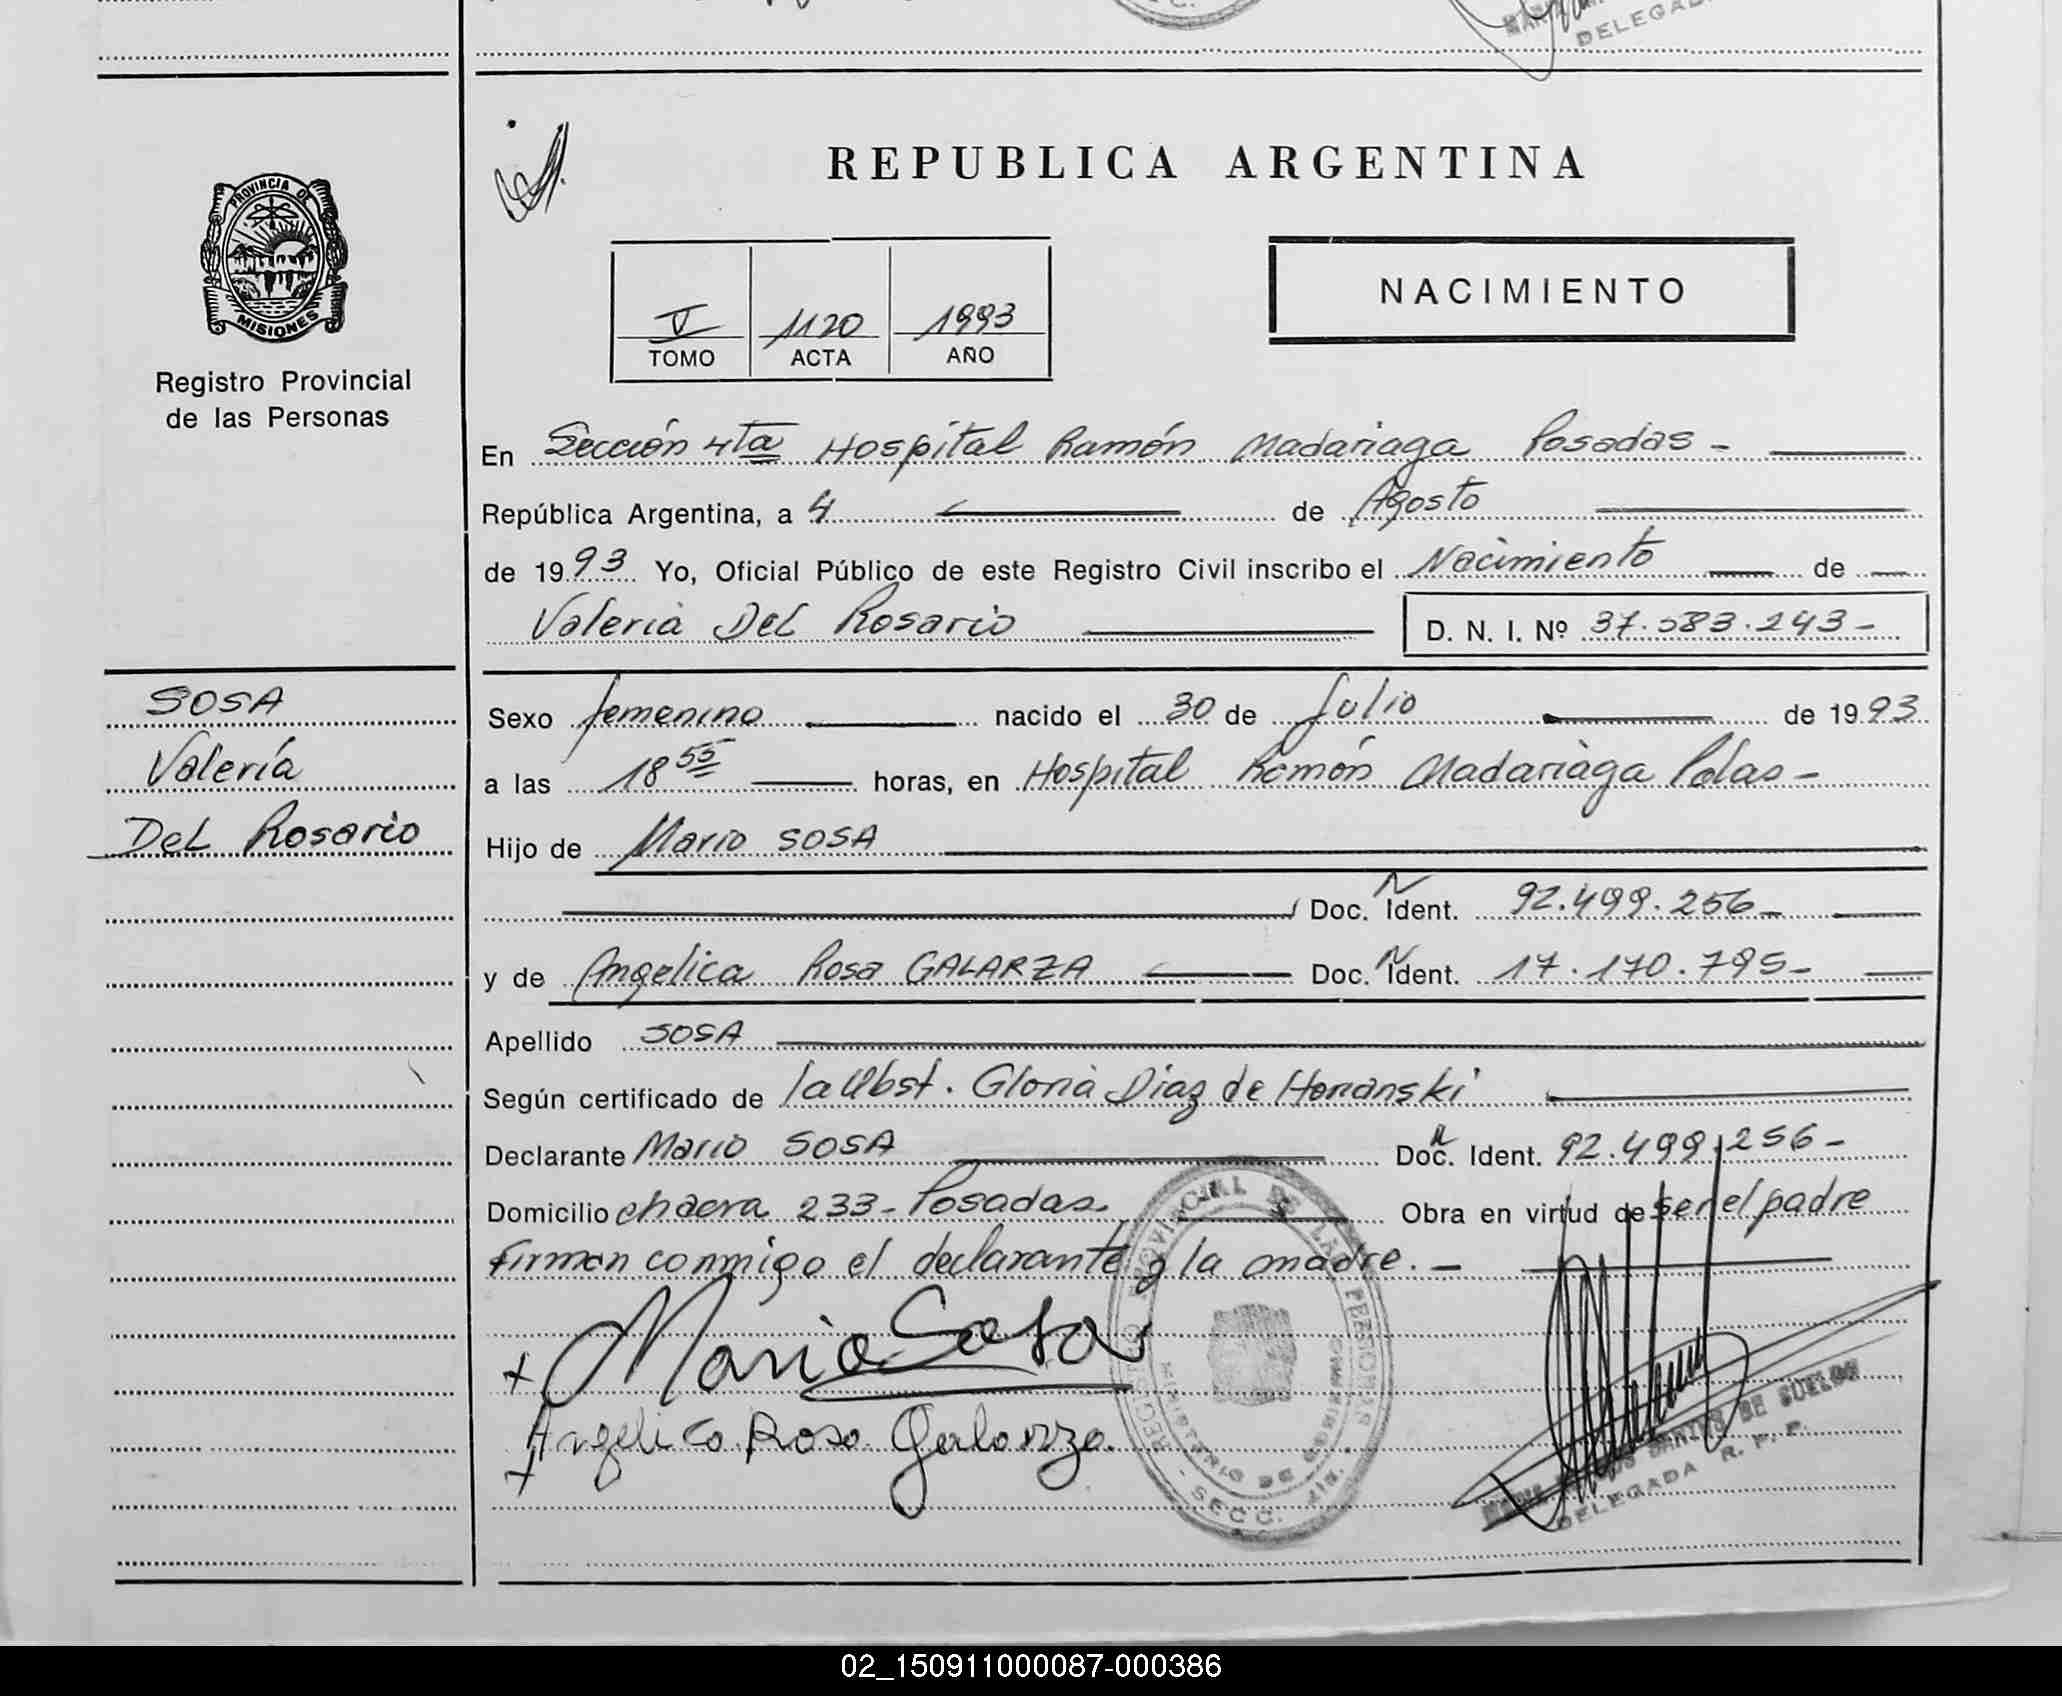 DELEGADA
REPUBLICA ARGENTINA
PROVINCIA DE
MISIONES
Registro Provincial
de las Personas
V 1120 1993
TOMO ACTA AÑO
NACIMIENTO
En Sección 4ta Hospital Ramón Madariaga Posadas -
República Argentina, a 4 de Agosto
de 1993 Yo, Oficial Público de este Registro Civil inscribo el Nacimiento de
Valeria Del Rosario D. N. I. Nº 37.583.243-
SOSA
Valería
Del Rosario
Sexo femenino nacido el 30 de Julio de 1993
a las 18 55 horas, en Hospital Ramón Madariaga Pdas-
Hijo de Mario SOSA
Doc. N Ident. 92.499.256-
y de Angelica Rosa GALARZA Doc. N Ident. 17.170.795-
Apellido SOSA
Según certificado de la Obst. Gloria Diaz de
Declarante Mario SOSA Doc. N Ident. 92.499.256-
Domicilio chacra 233- Posadas. Obra en virtud de ser el padre
firman conmigo el declarante y la madre. -
+ Mario Sosa
+ Angelica Rosa Galarza.
REGISTRO PROVINCIAL DE LAS PERSONAS
MINISTERIO DE GOBIERNO
SECC.
SANTOS DE SUELDO
DELEGADA R. P. P.
02_150911000087-000386